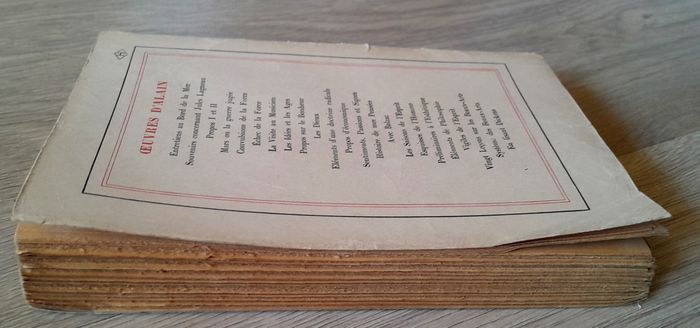 ŒUVRES D'ALAIN
Entretiens au Bord de la Mer
Souvenirs concernant Jules Lagneau
Propos I et II
Mars ou la guerre jugée
Convulsions de la Force
Échec de la Force
La Visite au Musicien
Les Idées et les Ages
Propos sur le Bonheur
Les Dieux
Éléments d'une doctrine radicale
Propos d'économique
Sentiments, Passions et Signes
Histoire de mes Pensées
Avec Balzac
Les Saisons de l'Esprit
Esquisses de l'Homme
Préliminaires à l'Esthétique
Éléments de Philosophie
Vigiles de l'Esprit
Vingt Leçons sur les Beaux-Arts
Système des Beaux-Arts
En lisant Dickens